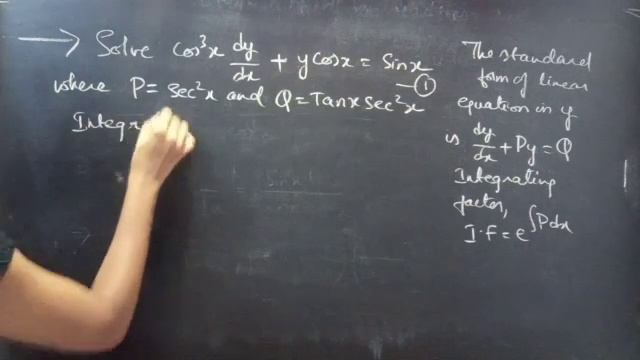 → Solve cos³x dy/dx + y cosx = sinx
—①
where P = sec²x and Q = Tanx sec²x
Integr
The standard
form of linear
equation in y
is dy/dx + Py = Q
Integrating
factor,
I.F = e^∫Pdx